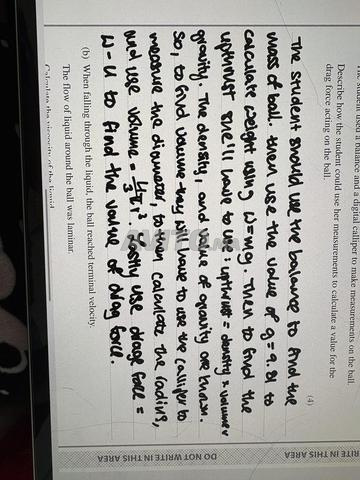 The student used a balance and a digital calliper to make measurements on the ball.
Describe how the student could use her measurements to calculate a value for the
drag force acting on the ball.
(4)
The student should use the balance to find the
mass of ball. then use the value of g = 9.81 to
calculate weight using W=mg. Then to find the
upthrust she'll have to use : upthrust = density x volume x
gravity. The density, and value of gravity are known.
So, to find volume they will have to use the calliper to
measure the diameter, to then calculate the radius,
and use volume = 4/3 πr³. Lastly use drage force =
W - U to find the value of drag force.
(b) When falling through the liquid the ball reached terminal velocity.
The flow of liquid around the ball was laminar.
Calculate the viscosity of the liquid
DO NOT WRITE IN THIS AREA
RITE IN THIS AREA
AVITO.ma